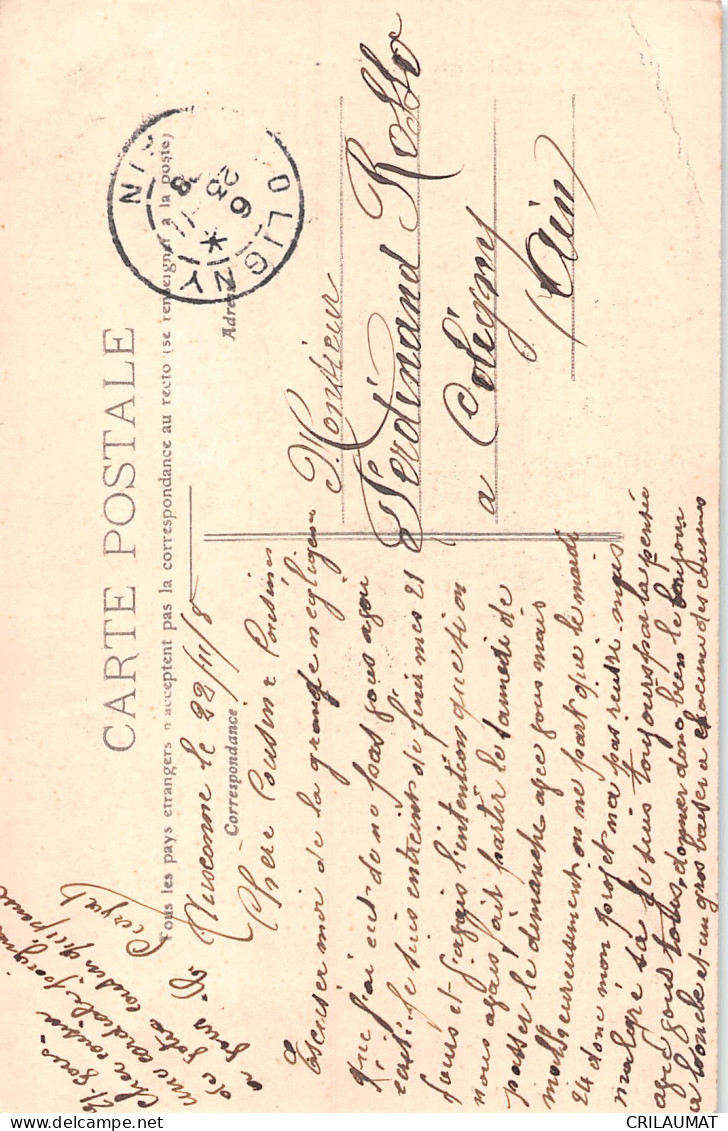 CARTE POSTALE
Tous les pays etrangers n acceptent pas la correspondance au recto (se renseigner à la poste)
Correspondance
Adresse
OLIGNY
AIN
23
6
Monsieur
Ferdinand Rosso
a Coligny
Ain
Auxonne le 22/11/8
Chère Cousine & Cousines
Escuser moi de la grande négligence
que j'ai eut de ne pas vous avoir
écrit. Je suis entreint de finir mes 21
jours et j'avais l'intentions question
nous avais fait partir le samedi de
passer le dimanche avec vous mais
malheureusement on ne part que le mardi
24 donc mon projet na pas reussi mais
malgré sa je suis toujours par la pensée
avec vous tous, donner donc bien le bonjour
a et un gros baiser a chacun des cousines
Et vous
cher cousin
une cordiale poignée
de votre cousin qui pense
a vous
CRILAUMAT